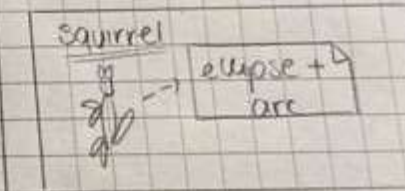 squirrel
ellipse +
arc